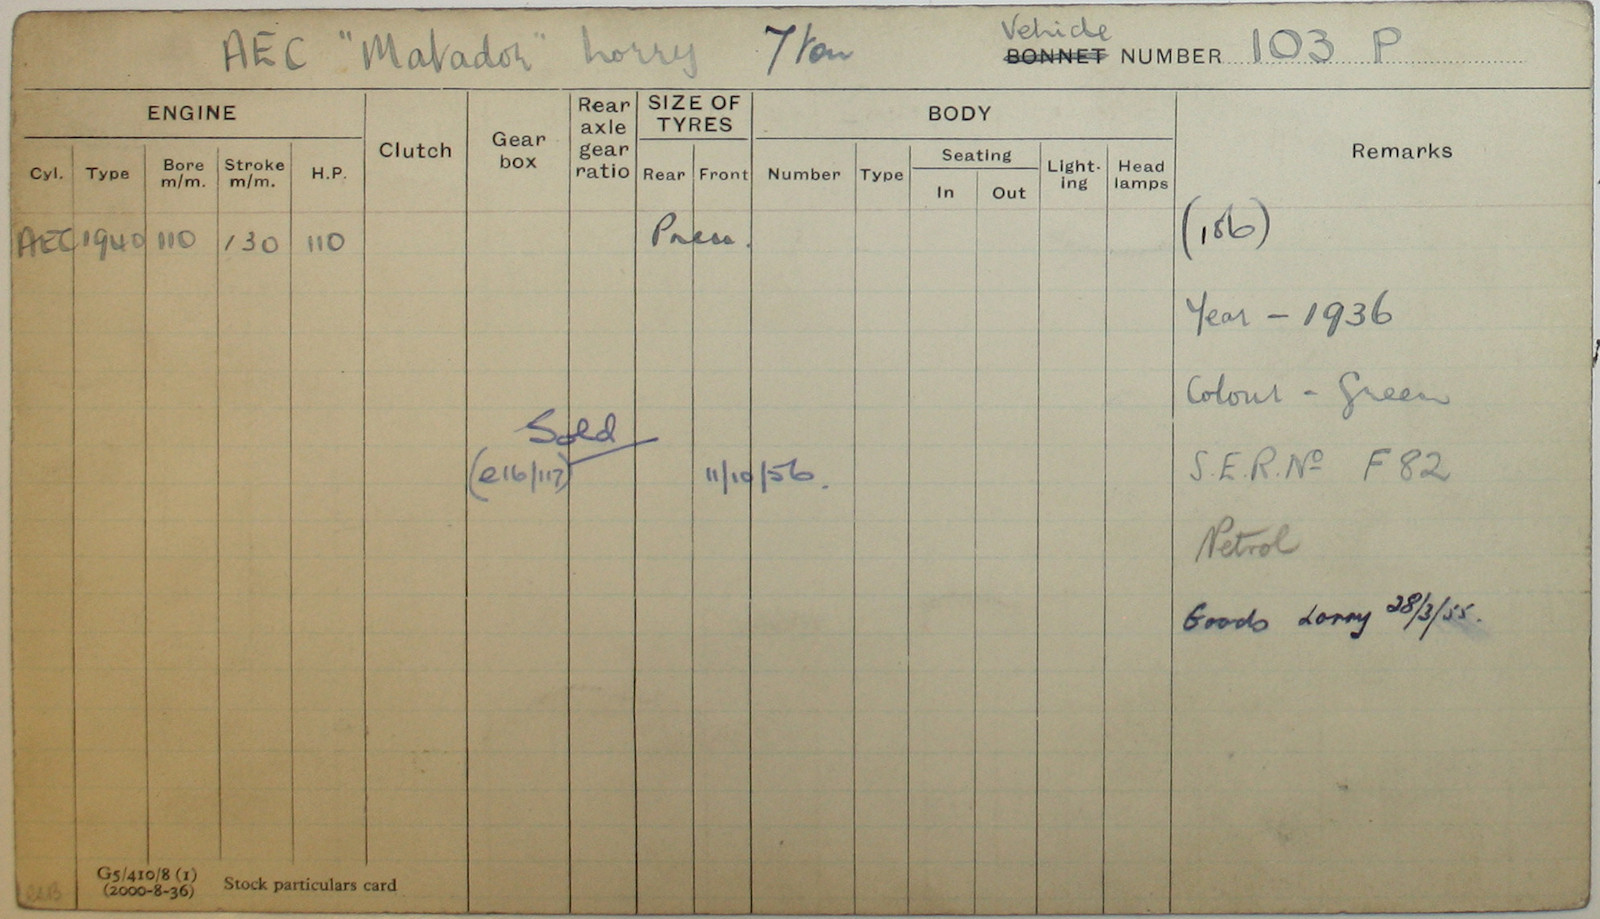 AEC "Matador" Lorry 7 ton
Vehicle
BONNET NUMBER 103 P
ENGINE
Clutch
Gear box
Rear axle gear ratio
SIZE OF TYRES
BODY
Remarks
Cyl. Type Bore m/m. Stroke m/m. H.P.
Rear Front
Number Type Seating In Out Light-ing Head lamps
AEC 1940 110 130 110 Pneu.
(156)
Year - 1936
Colour - Green
Sold
(e16/117) 11/10/56.
S.E.R. No F 82
Petrol
Goods Lorry 28/3/55.
G5/410/8 (1)
(2000-8-36)
Stock particulars card